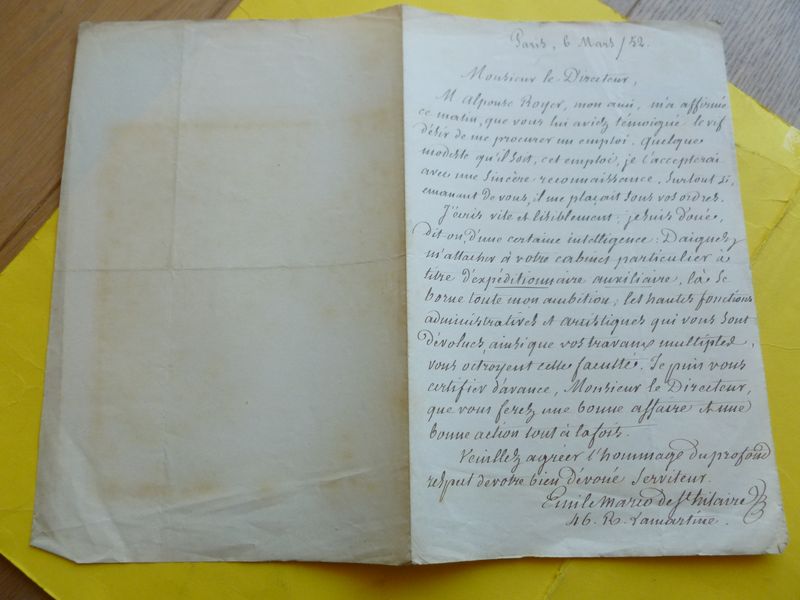 Paris, 6 Mars /52.
Monsieur le Directeur,
M. Alponse Royer, mon ami, m'a affirmé
ce matin, que vous lui aviez témoigné le vif
désir de me procurer un emploi. Quelque
modeste qu'il soit, cet emploi, je l'accepterai
avec une sincère reconnaissance, surtout si,
émanant de vous, il me plaçait sous vos ordres.
J'écris vite et lisiblement; je suis doué,
dit-on, d'une certaine intelligence: Daignez
m'attacher à votre cabinet particulier à
titre d'expéditionnaire auxiliaire, là se
borne toute mon ambition; les hautes fonctions
administratives et artistiques qui vous sont
dévolues, ainsi que vos travaux multiples,
vous octroyent cette faculté. Je puis vous
certifier d'avance, Monsieur le Directeur,
que vous ferez une bonne affaire et une
bonne action tout à la fois.
Veuillez agréer l'hommage du profond
respect de votre bien dévoué serviteur.
Emile Marco de St hilaire
46. R. Lamartine.